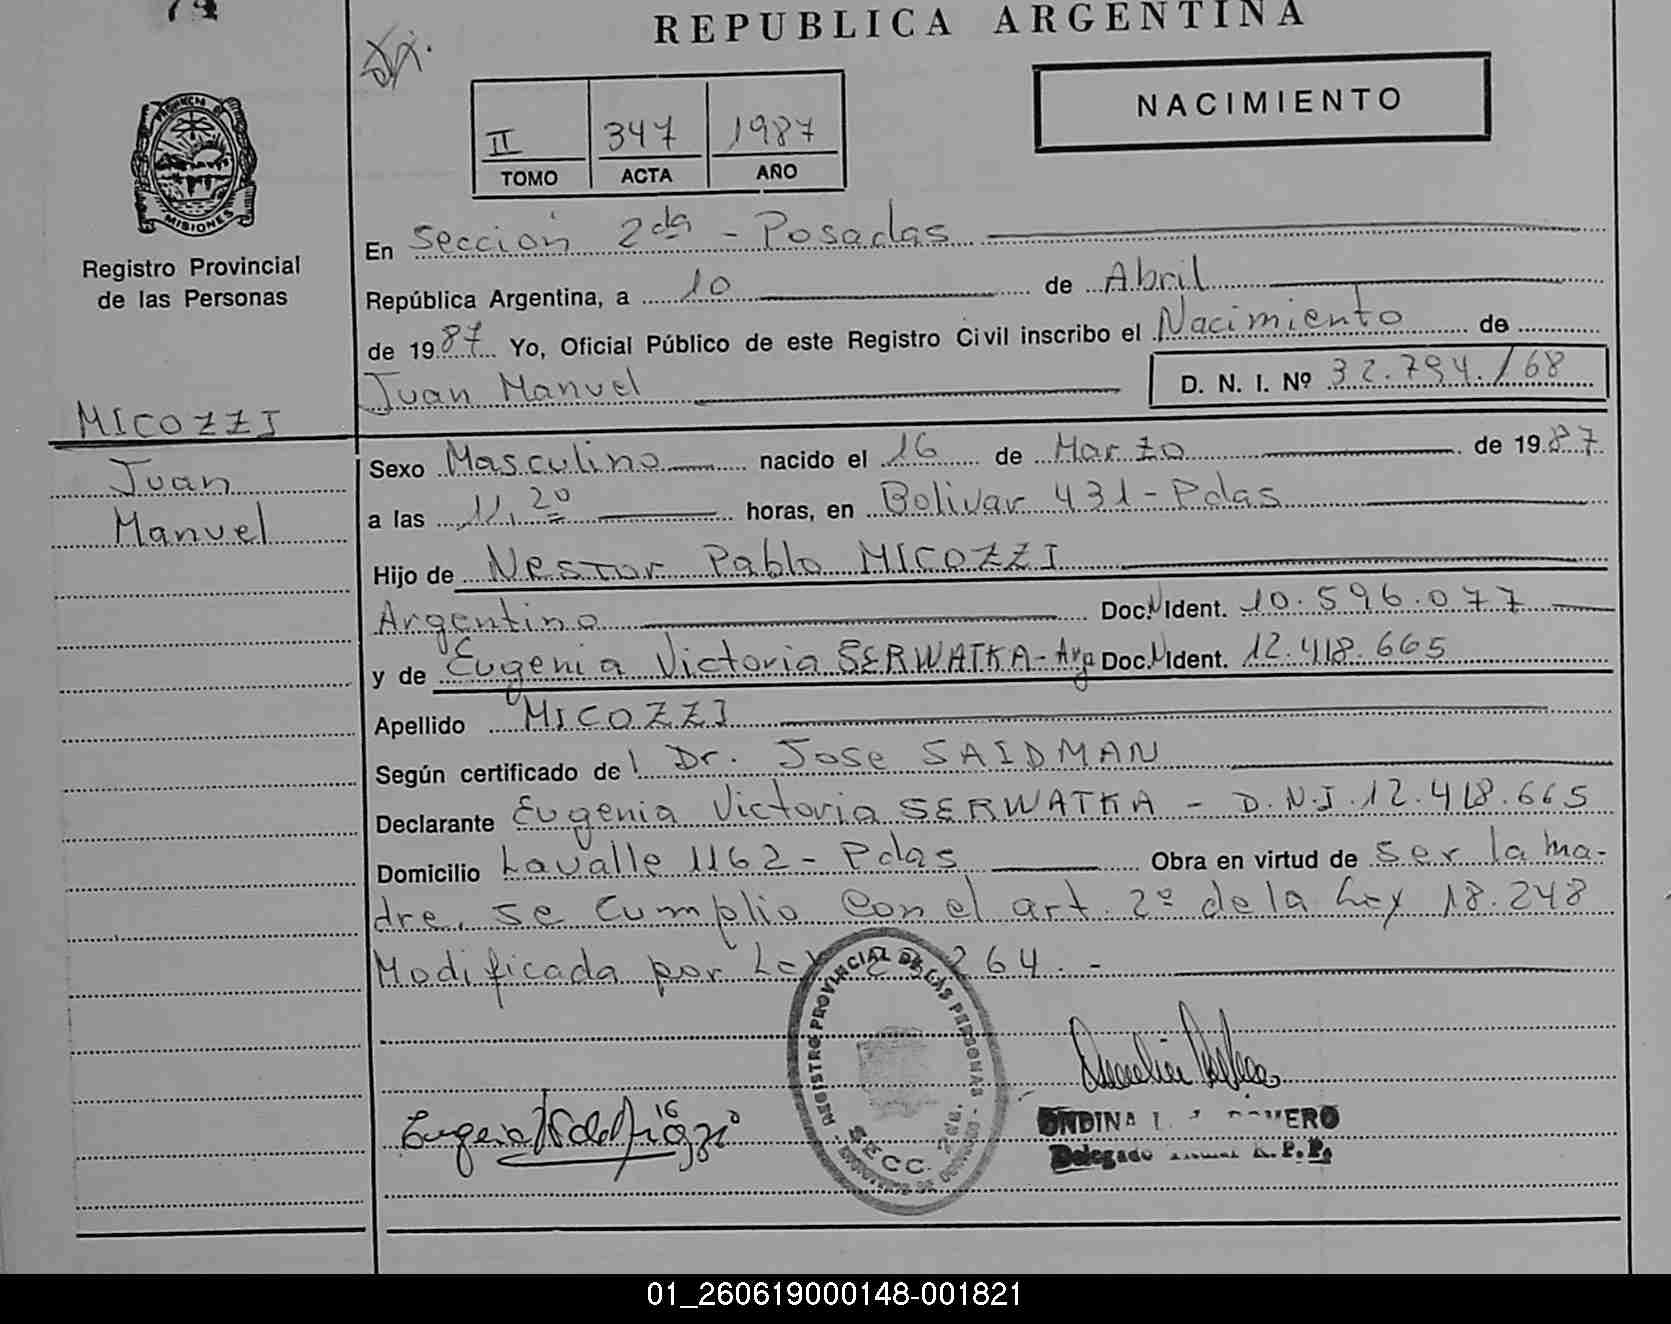 74
REPUBLICA ARGENTINA
NACIMIENTO
II 347 1987
TOMO ACTA AÑO
PROVINCIA DE MISIONES
Registro Provincial
de las Personas
En Sección 2da - Posadas
República Argentina, a 10 de Abril
de 1987 Yo, Oficial Público de este Registro Civil inscribo el Nacimiento de
Juan Manuel D. N. I. Nº 32.794./68
MICOZZI
Juan
Manuel
Sexo Masculino nacido el 16 de Marzo de 1987
a las 11,20 horas, en Bolivar 431 - Pdas
Hijo de Nestor Pablo MICOZZI
Argentino Doc. N Ident. 10.596.077
y de Eugenia Victoria SERWATKA - Arg Doc. N Ident. 12.418.665
Apellido MICOZZI
Según certificado del Dr. Jose SAIDMAN
Declarante Eugenia Victoria SERWATKA - D.N.I. 12.418.665
Domicilio Lavalle 1162 - Pdas Obra en virtud de ser la ma-
dre, se cumplio con el art. 2º de la Ley 18.248
Modificada por Ley 264. -
REGISTRO PROVINCIAL DE LAS PERSONAS
SECC. 2da.
ONDINA ROMERO
Delegado R.P.P.
01_260619000148-001821